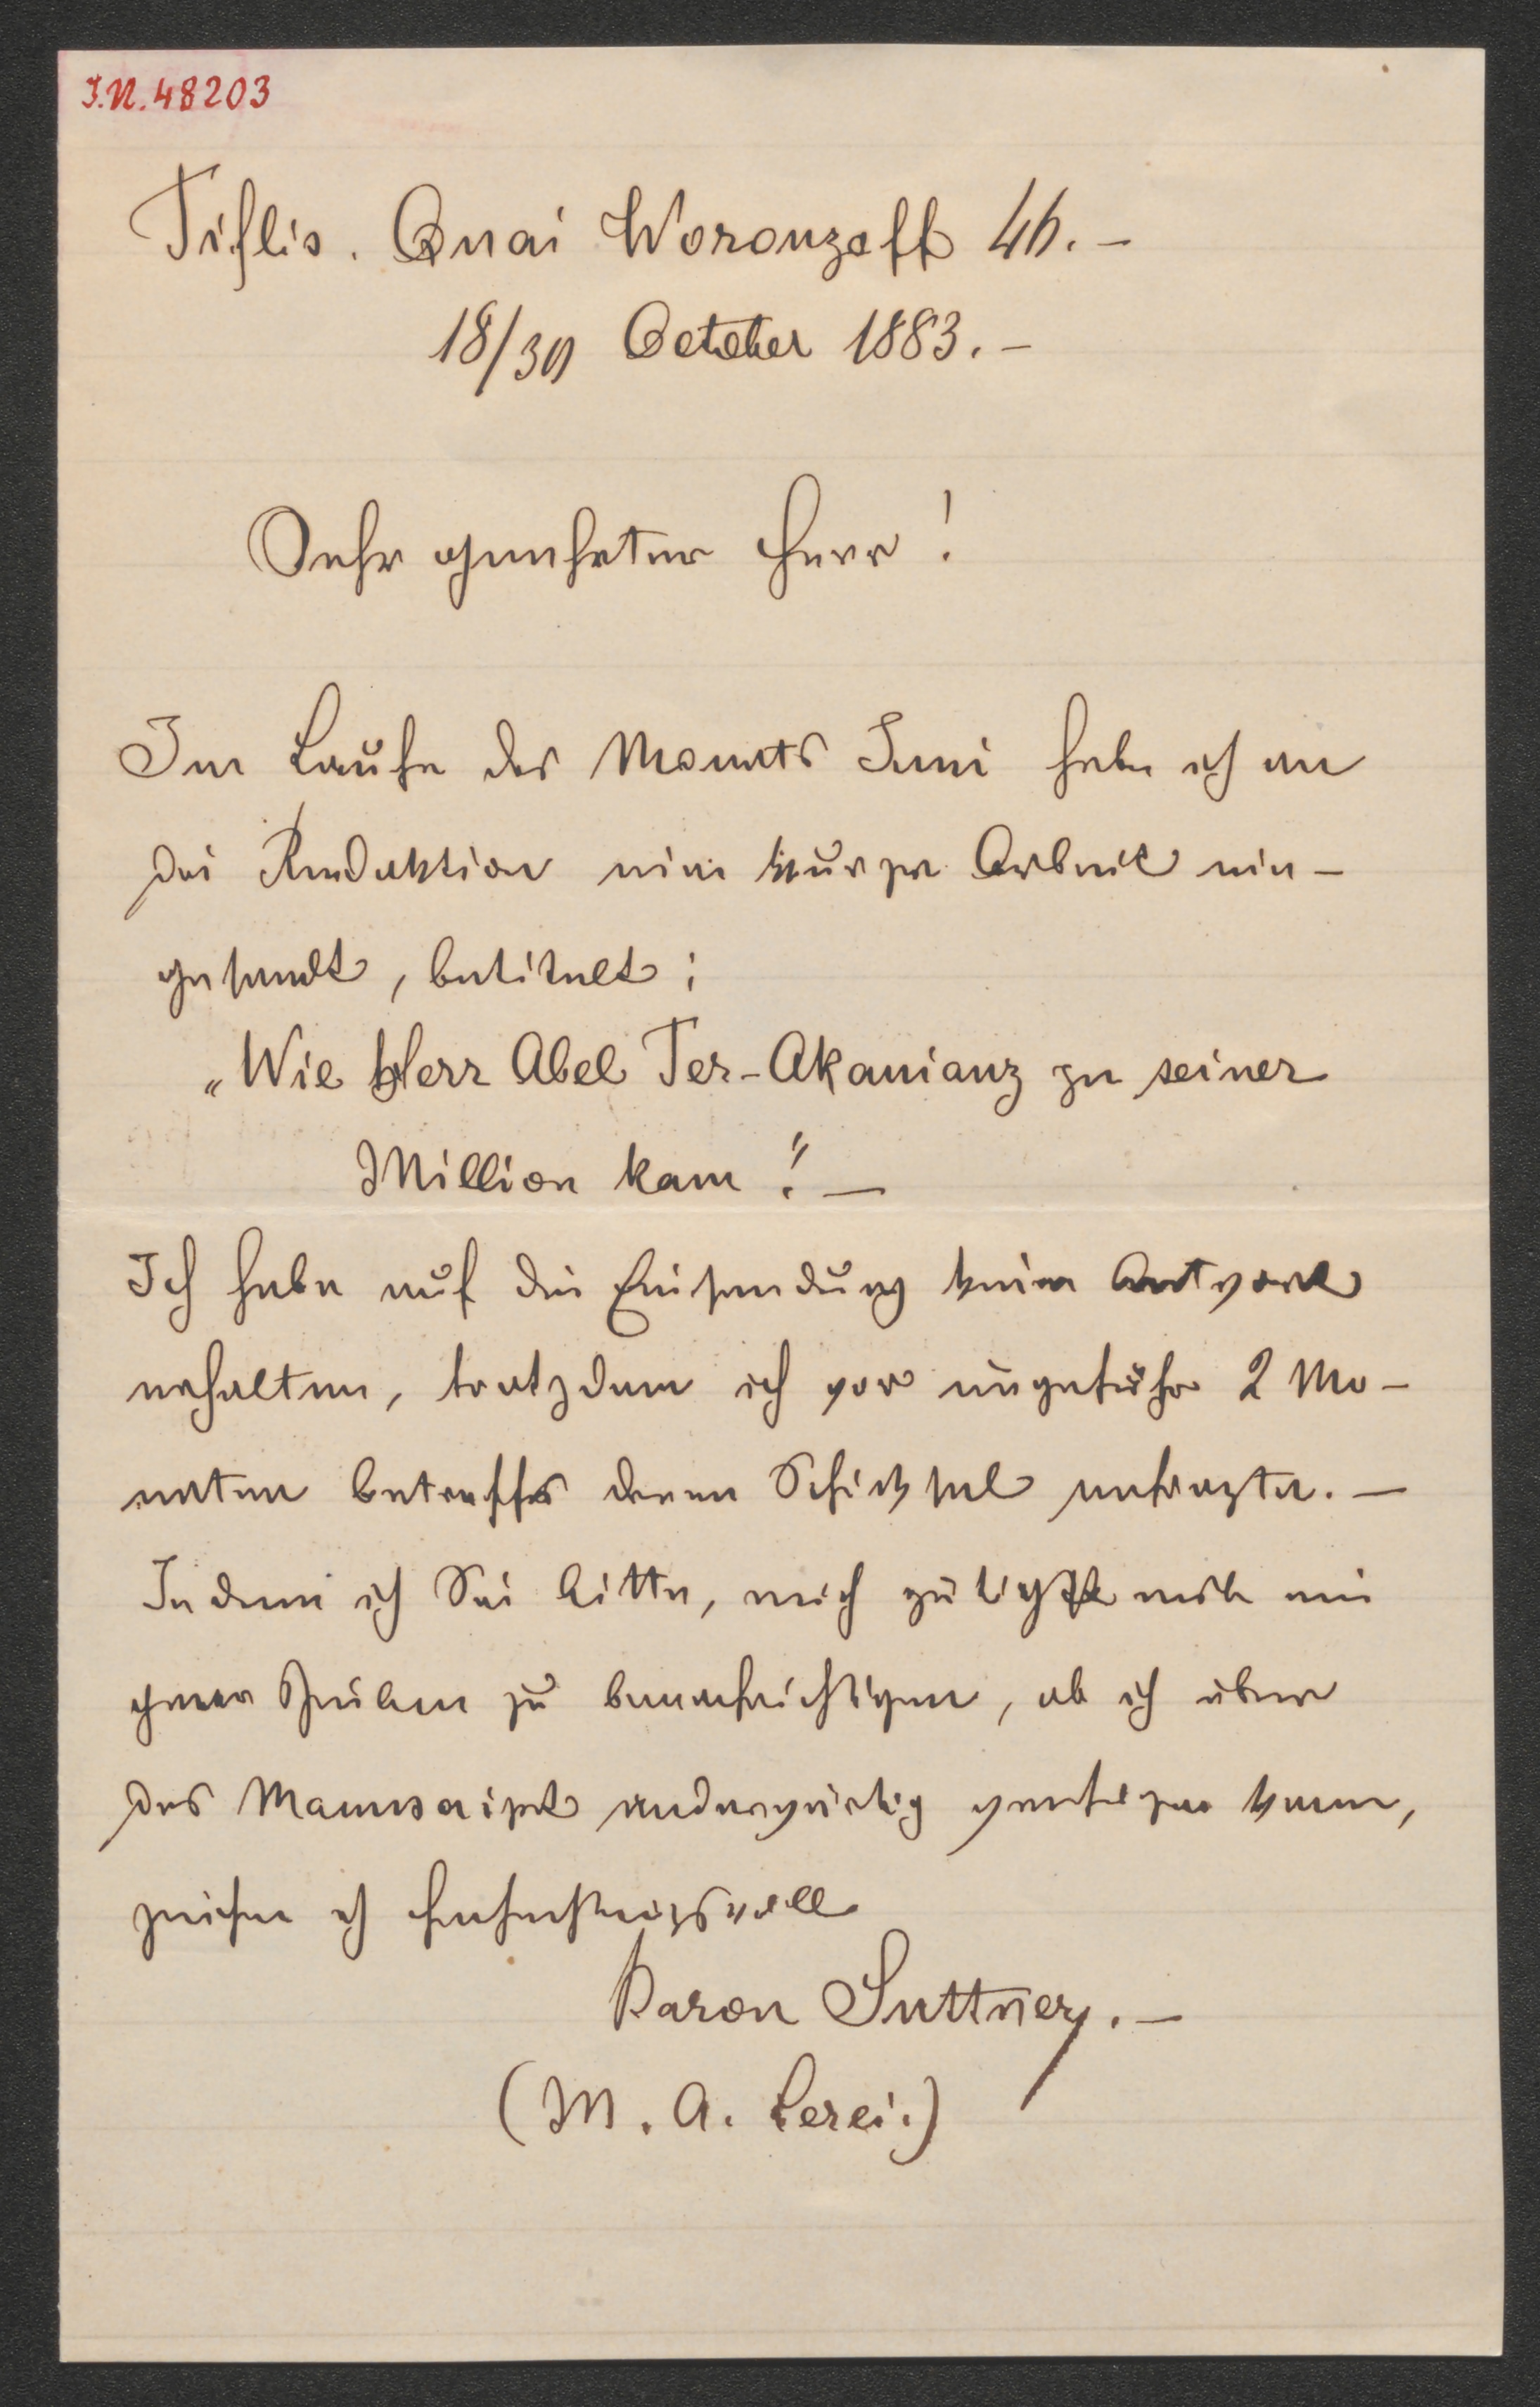 I.N. 48203
Tiflis. Quai Woronzoff 46. –
18/30 October 1883. –
Sehr geehrter Herr!
Im Laufe des Monats Juni habe ich an
die Redaktion eine kurze Arbeit ein-
gesandt, betitelt:
„Wie Herr Abel Ter-Akanianz zu seiner
Million kam!" –
Ich habe auf die Einsendung keine Antwort
erhalten, trotzdem ich vor ungefähr 2 Mo-
naten betreffs deren Schicksal anfragte. –
Indem ich Sie bitte, mich gütigst mit ein
paar Zeilen zu benachrichtigen, ob ich über
das Manuscript anderweitig verfügen kann,
zeichne ich hochachtungsvoll
Baron Suttner. –
(M. A. Lerei.)